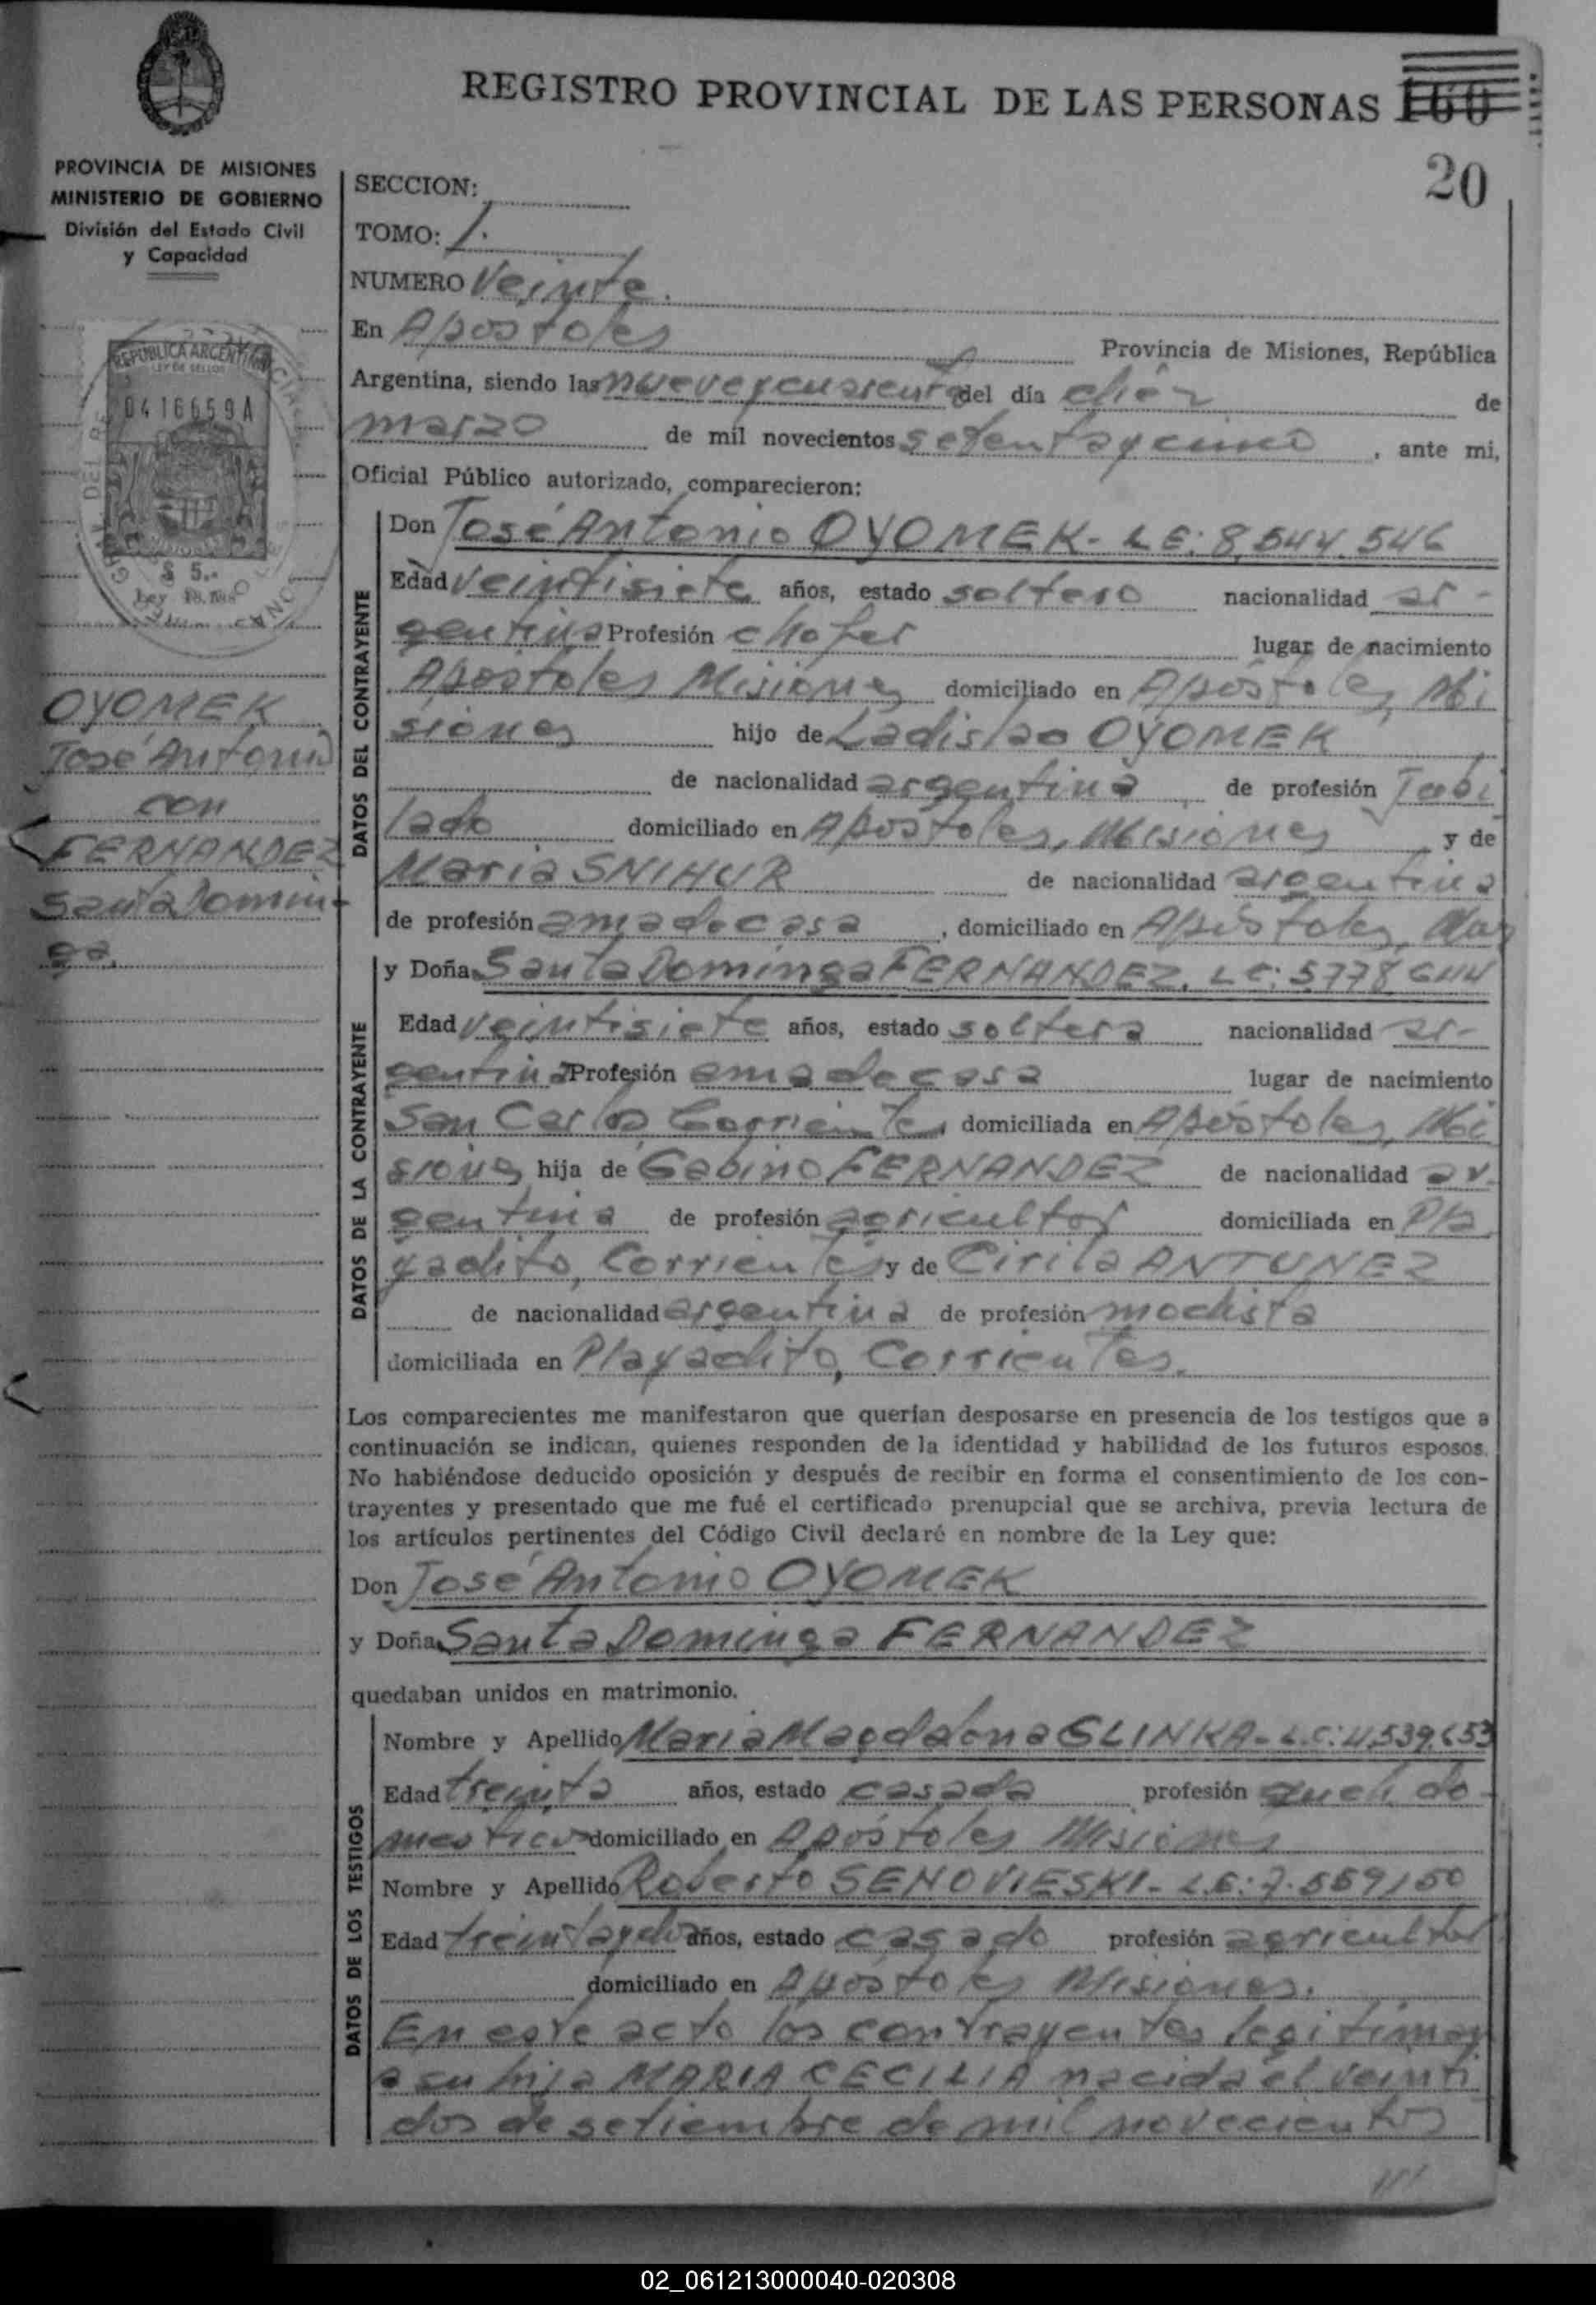 REGISTRO PROVINCIAL DE LAS PERSONAS 160
20
PROVINCIA DE MISIONES
MINISTERIO DE GOBIERNO
División del Estado Civil
y Capacidad
REPUBLICA ARGENTINA
LEY DE SELLOS
0416659A
$ 5.-
OYOMEK
José Antonio
con
FERNANDEZ
Santa Domin-
ga.
SECCION:
TOMO: 1.
NUMERO Veinte.
En Apostoles Provincia de Misiones, República
Argentina, siendo las nueve y cuarenta del día diez de
marzo de mil novecientos setenta y cinco, ante mi,
Oficial Público autorizado, comparecieron:
DATOS DEL CONTRAYENTE
Don José Antonio OYOMEK- LE: 8.544.546
Edad veintisiete años, estado soltero nacionalidad ar-
gentina Profesión chofer lugar de nacimiento
Apóstoles Misiones domiciliado en Apóstoles, Mi
siones hijo de Ladislao OYOMEK
de nacionalidad argentina de profesión Jubi
lado domiciliado en Apóstoles, Misiones y de
Maria SNIHUR de nacionalidad argentina
de profesión ama de casa, domiciliado en Apóstoles,
DATOS DE LA CONTRAYENTE
y Doña Santa Dominga FERNANDEZ. LC: 5778644
Edad veintisiete años, estado soltera nacionalidad ar-
gentina Profesión ama de casa lugar de nacimiento
San Carlos Corrientes domiciliada en Apóstoles, Mi
siones hija de Gabino FERNANDEZ de nacionalidad ar-
gentina de profesión agricultor domiciliada en Pla
yadito, Corrientes y de Cirila ANTUNEZ
de nacionalidad argentina de profesión modista
domiciliada en Playadito, Corrientes.
Los comparecientes me manifestaron que querían desposarse en presencia de los testigos que a
continuación se indican, quienes responden de la identidad y habilidad de los futuros esposos.
No habiéndose deducido oposición y después de recibir en forma el consentimiento de los con-
trayentes y presentado que me fué el certificado prenupcial que se archiva, previa lectura de
los artículos pertinentes del Código Civil declaré en nombre de la Ley que:
Don José Antonio OYOMEK
y Doña Santa Dominga FERNANDEZ
quedaban unidos en matrimonio.
DATOS DE LOS TESTIGOS
Nombre y Apellido Maria Magdalena SLINKA- L.C: 4.539.653
Edad treinta años, estado casada profesión queh. do-
mesticos domiciliado en Apóstoles Misiones
Nombre y Apellido Roberto SENOVIESKI- L.E: 7.559150
Edad treinta y dos años, estado casado profesión agricultor
domiciliado en Apóstoles Misiones.
En este acto los contrayentes legitiman
a su hija MARIA CECILIA nacida el veinti
dos de setiembre de mil novecientos
///
02_061213000040-020308